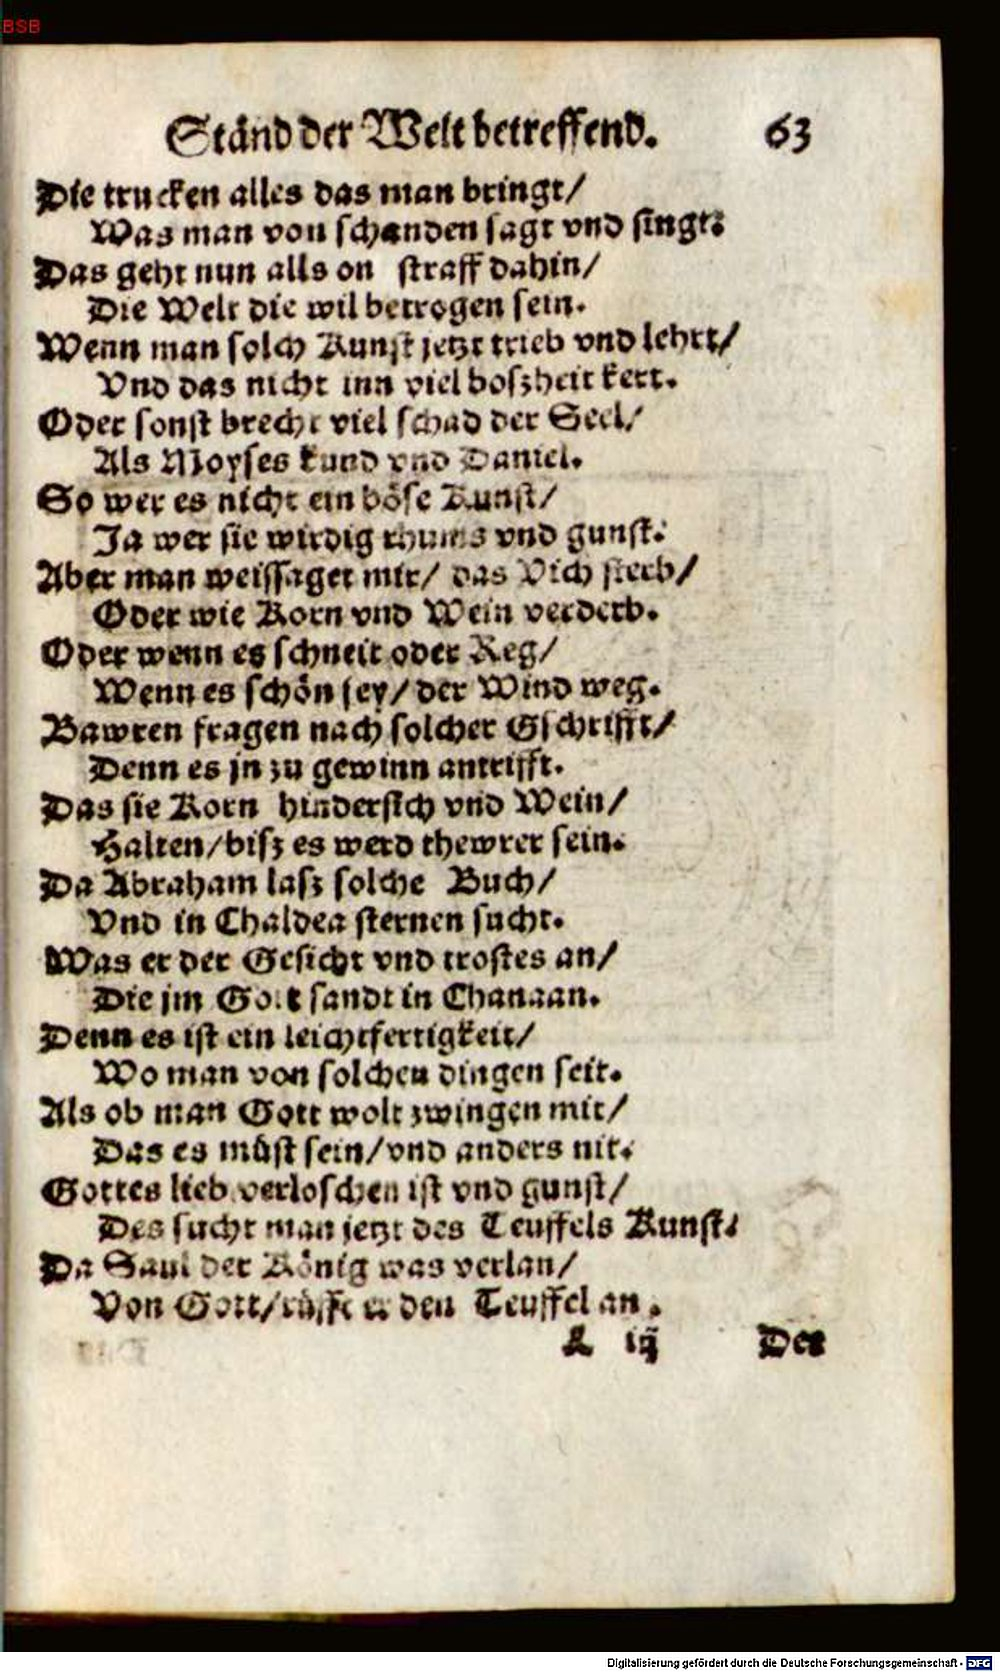 BSB
Ständ der Welt betreffend. 63
Die trucken alles das man bringt/
Was man von schanden sagt vnd singt:
Das geht nun alls on straff dahin/
Die Welt die wil betrogen sein.
Wenn man solch Kunst jetzt trieb vnd lehrt/
Vnd das nicht inn viel boszheit kert.
Oder sonst brecht viel schad der Seel/
Als Moyses kund vnd Daniel.
So wer es nicht ein böse Kunst/
Ja wer sie wirdig rhums vnd gunst:
Aber man weissaget mir/ das Vich sterb/
Oder wie Korn vnd Wein verderb.
Oder wenn es schneit oder Reg/
Wenn es schön sey/ der Wind weg.
Bawren fragen nach solcher Gschrifft/
Denn es jn zu gewinn antrifft.
Das sie Korn hindersich vnd Wein/
Halten/ bisz es werd thewrer sein.
Da Abraham lasz solche Buch/
Vnd in Chaldea sternen sucht.
Was er der Gesicht vnd trostes an/
Die jm Gott sandt in Chanaan.
Denn es ist ein leichtfertigkeit/
Wo man von solchen dingen seit.
Als ob man Gott wolt zwingen mit/
Das es müst sein/ vnd anders nit.
Gottes lieb verloschen ist vnd gunst/
Des sucht man jetzt des Teuffels Kunst.
Da Saul der König was verlan/
Von Gott/ rüfft er den Teuffel an.
iij Der
Digitalisierung gefördert durch die Deutsche Forschungsgemeinschaft - DFG